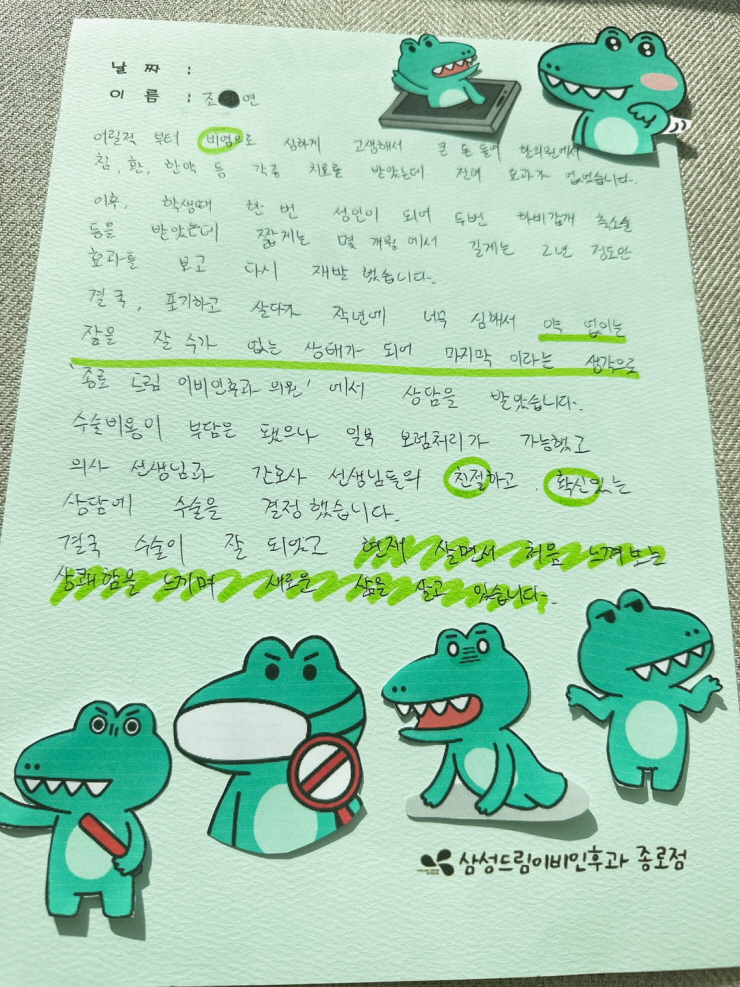 날 짜 :
이 름 : 조 연
어릴적 부터 비염으로 심하게 고생해서 큰 돈 들여 한의원에서
침, 환, 한약 등 각종 치료를 받았는데 전혀 효과가 없었습니다.
이후, 학생때 한 번 성인이 되어 두번 하비갑개 축소술
등을 받았는데 짧게는 몇 개월에서 길게는 2년 정도만
효과를 보고 다시 재발 했습니다.
결국, 포기하고 살다가 작년에 너무 심해서 약 없이는
잠을 잘 수가 없는 상태가 되어 마지막 이라는 생각으로
'종로 드림 이비인후과 의원' 에서 상담을 받았습니다.
수술비용이 부담은 됐으나 일부 보험처리가 가능했고
의사 선생님과 간호사 선생님들의 친절하고, 확신있는
상담에 수술을 결정했습니다.
결국 수술이 잘 되었고 현재 살면서 처음 느껴보는
상쾌함을 느끼며 새로운 삶을 살고 있습니다.
삼성드림이비인후과 종로점